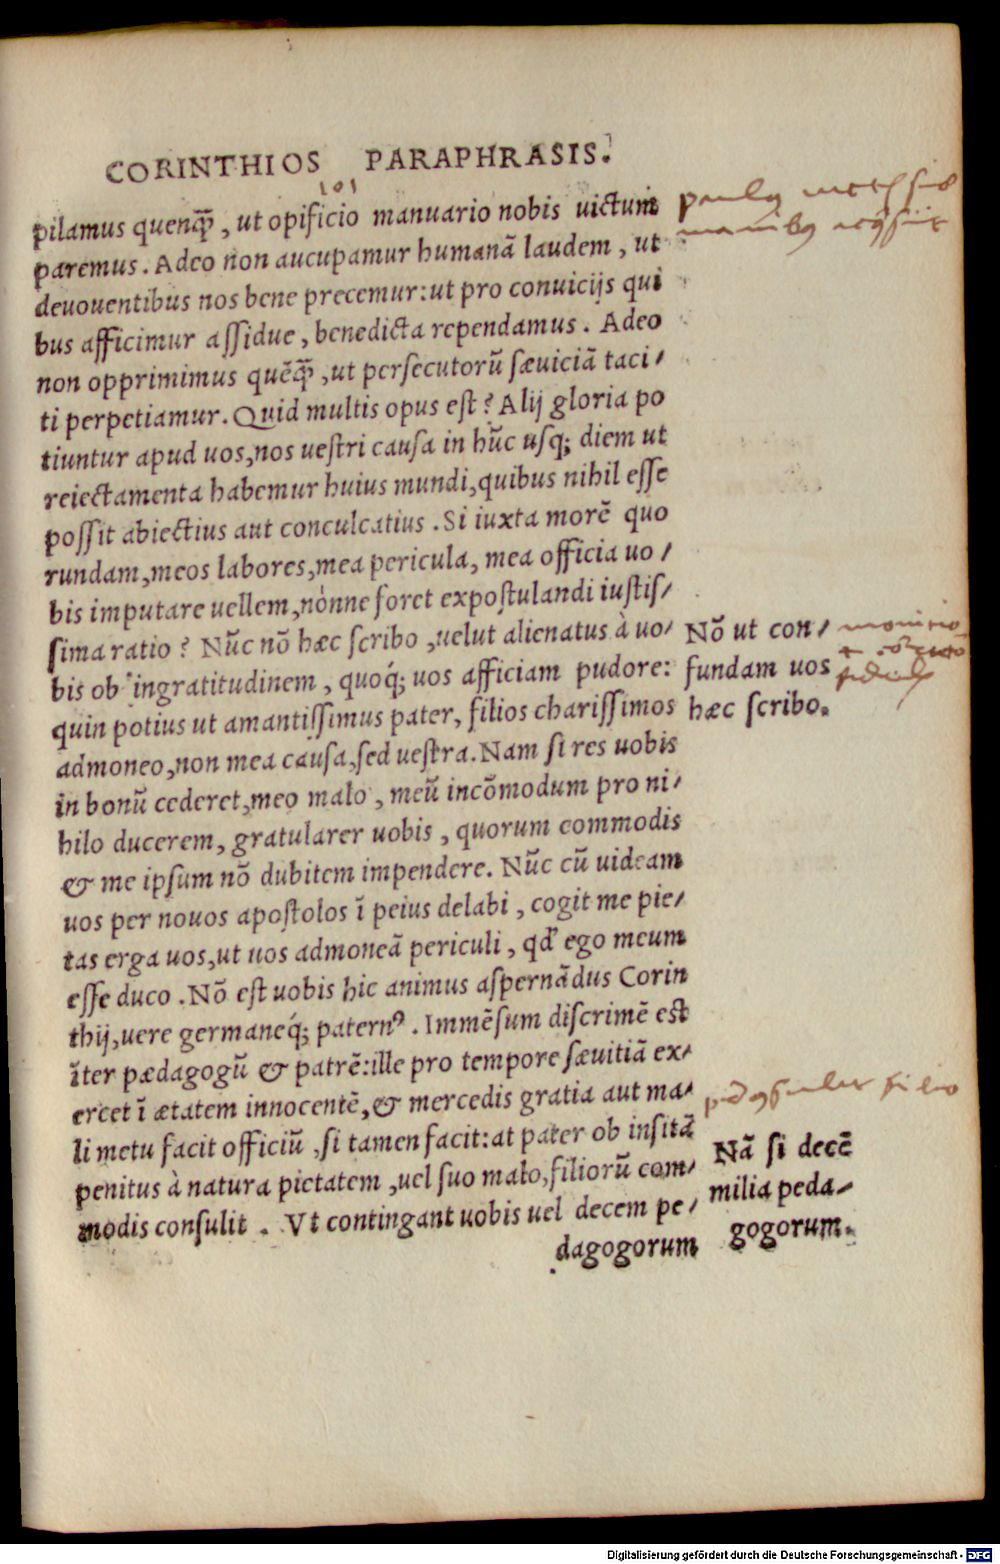 CORINTHIOS PARAPHRASIS.
pilamus quenq̃, ut opificio manuario nobis uictum
paremus. Adeo non aucupamur humanã laudem, ut
deuouentibus nos bene precemur: ut pro conuicijs qui
bus afficimur aſſidue, benedicta rependamus. Adeo
non opprimimus quẽq̃, ut perſecutorũ ſæuiciã taci/
ti perpetiamur. Quid multis opus eſt? Alij gloria po
tiuntur apud uos, nos ueſtri cauſa in hũc uſq; diem ut
reiectamenta habemur huius mundi, quibus nihil eſſe
poſſit abiectius aut conculcatius. Si iuxta morẽ quo
rundam, meos labores, mea pericula, mea officia uo/
bis imputare uellem, nónne foret expoſtulandi iuſtiſ/
ſima ratio? Nũc nõ hæc ſcribo, uelut alienatus à uo/
bis ob ingratitudinem, quoq́; uos afficiam pudore:
quin potius ut amantiſſimus pater, filios chariſſimos
admoneo, non mea cauſa, ſed ueſtra. Nam ſi res uobis
in bonũ cederet, meo malo, meũ incõmodum pro ni/
hilo ducerem, gratularer uobis, quorum commodis
& me ipſum nõ dubitem impendere. Nũc cũ uideam
uos per nouos apoſtolos ĩ peius delabi, cogit me pie/
tas erga uos, ut uos admoneã periculi, qď ego meum
eſſe duco. Nõ eſt uobis hic animus aſpernãdus Corin
thij, uere germaneq́; paternꝰ. Immẽſum diſcrimẽ eſt
ĩter pædagogũ & patrẽ: ille pro tempore ſæuitiã ex/
ercet ĩ ætatem innocentẽ, & mercedis gratia aut ma/
li metu facit officiũ, ſi tamen facit: at pater ob inſitã
penitus à natura pietatem, uel ſuo malo, filiorũ com/
modis conſulit. Vt contingant uobis uel decem pe/
dagogorum
Nõ ut con/
fundam uos
hæc ſcribo.
Nã ſi decẽ
milia peda/
gogorum.
Digitalisierung gefördert durch die Deutsche Forschungsgemeinschaft - DFG